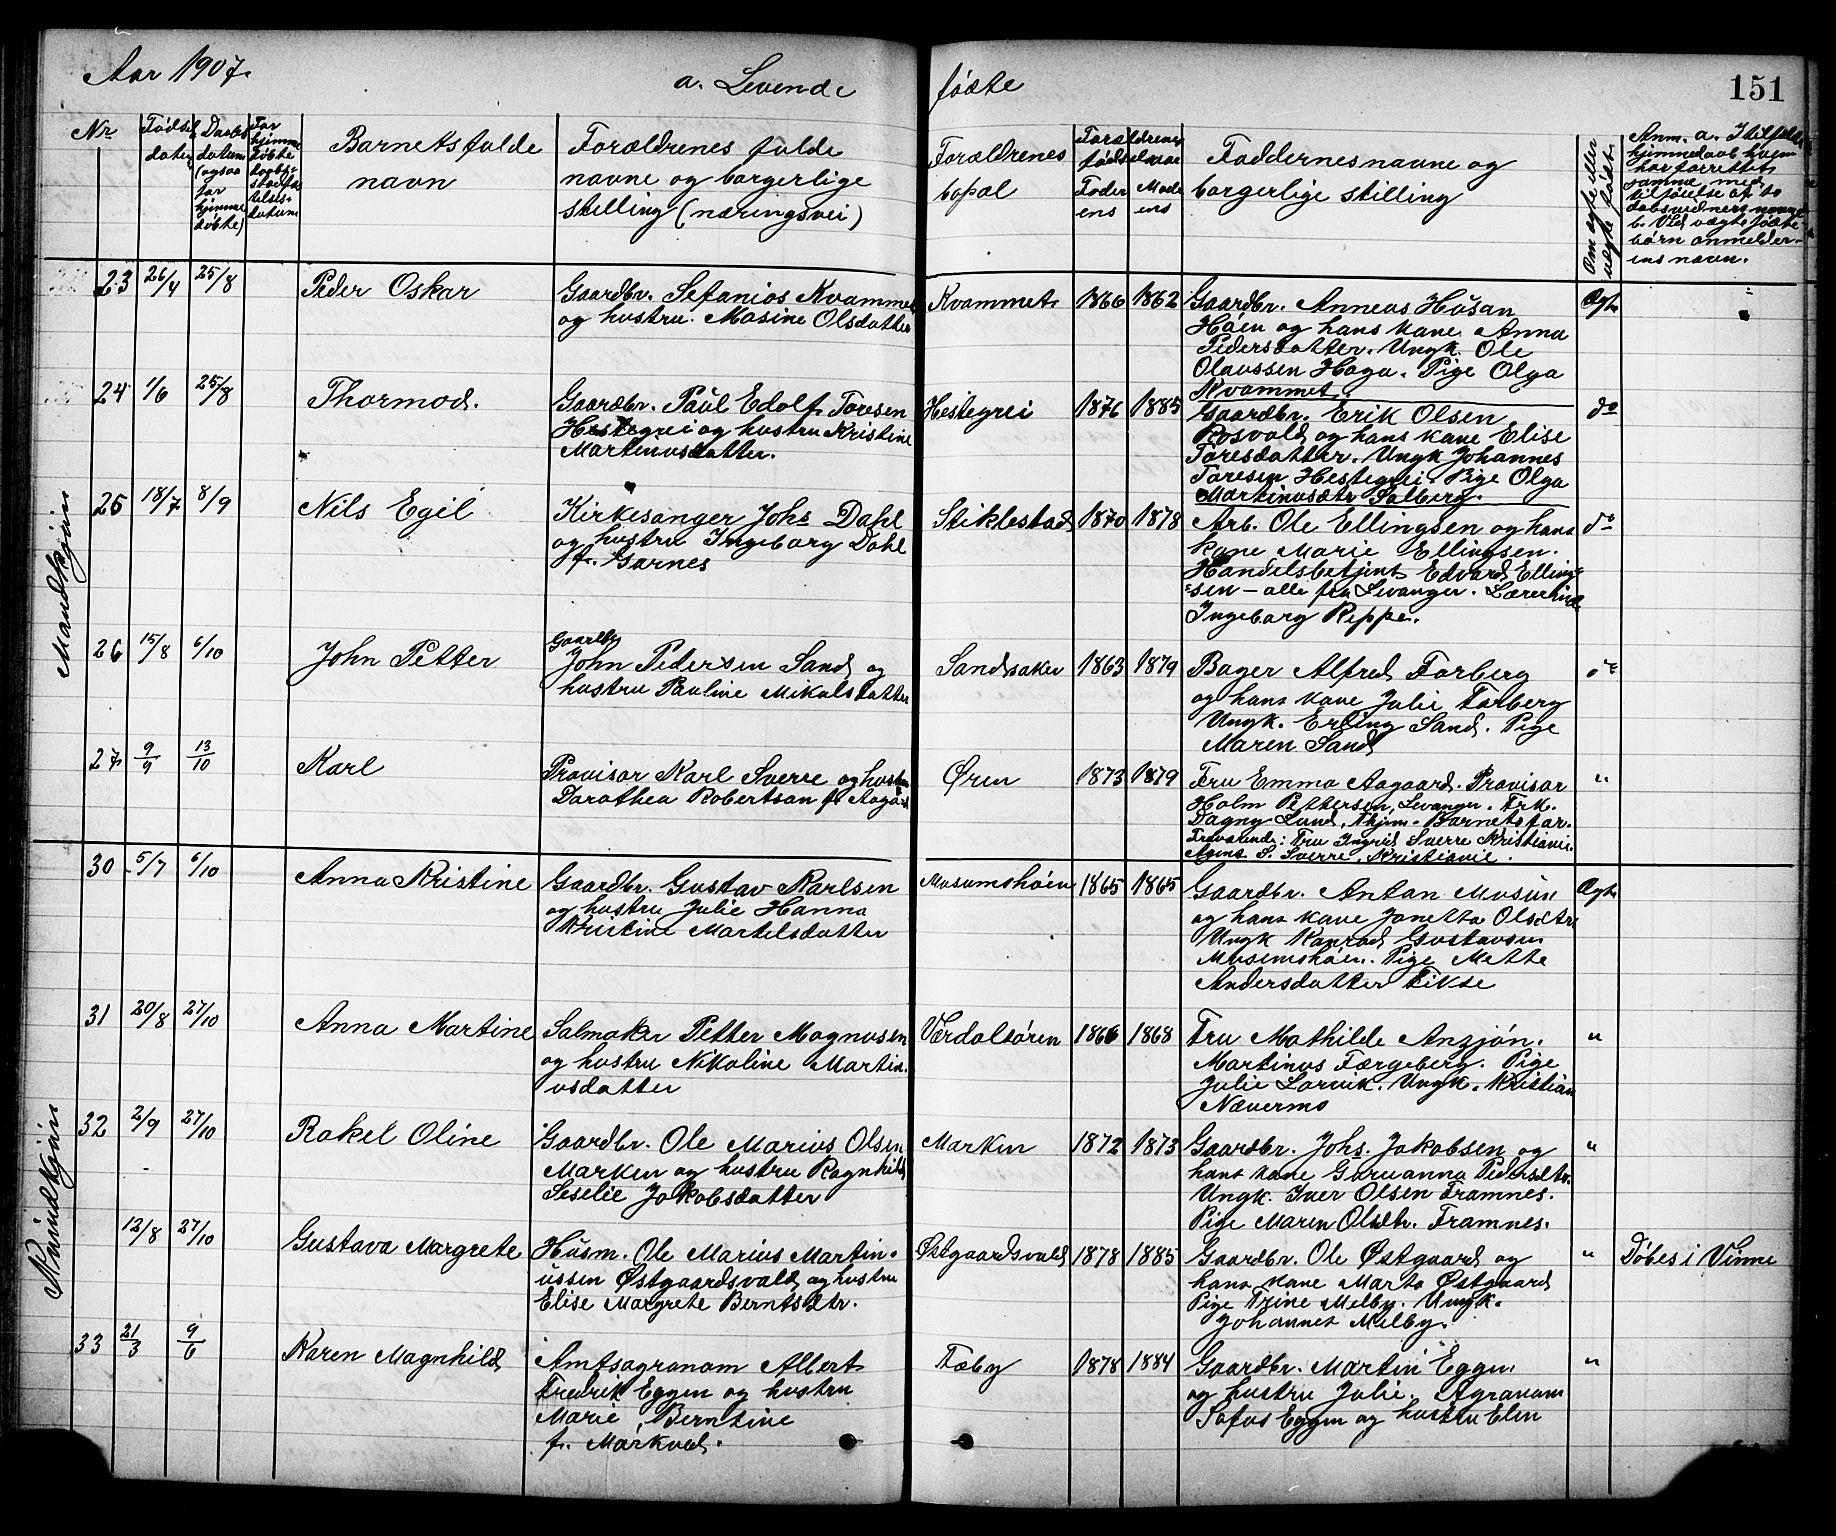 Aar 1907.
a. Levende fødte
151
Nr
Fødsels
datum
Daabs
datum
(ogsaa
for
hjemme
døbte)
For
hjemme
døbte
Barnets fulde
navn
Forældrenes fulde
navne og borgerlige
stilling (næringsvei)
Forældrenes
bopæl
Forældrenes
fødselsaar
Faderens
Moderens
Faddernes navne og
borgerlige stilling
Om ægte eller
uægte født
Anm. a. I tilfælde
hjemmedaab hvem
har forrettet
samme med
tilføielse af to
daabsvidners navne
b. Ved uægte fødte
børn anmelder-
ens navn.
Mandkjøn
23 26/4 25/8 Peder Oskar
Gaardbr. Sefanias Kvammet
og hustru. Masine Olsdatter
Kvammet 1866 1862
Gaardbr. Anneus Husan
Høen og hans kone Anna
Pedersdatter. Ungk. Ole
Olaussen Haga. Pige Olga
Kvammet.
Ægte
24 1/6 25/8 Thormod.
Gaardbr. Paul Edolf Toresen
Hestegrei og hustru Kristine
Martinusdatter.
Hestegrei 1876 1885
Gaardbr. Erik Olsen
Rosvold og hans kone Elise
Toresdatter. Ungk Johannes
Toresen Hestegrei. Pige Olga
Martinusdtr Solberg.
do
25 18/7 8/9 Nils Egil
Kirkesanger Johs Dahl
og hustru Ingeborg Dahl
f. Garnes
Stiklestad 1870 1878
Arb. Ole Ellingsen og hans
kone Marie Ellingsen.
Handelsbetjent Edvard Elling-
sen – alle fra Levanger. Lærerinde
Ingeborg Reppe.
do
26 15/8 6/10 John Petter
Gaardbr
John Pedersen Sand og
hustru Pauline Mikalsdatter
Sandsaker 1863 1879
Bager Alfred Forberg
og hans kone Julie Forberg
Ungk. Erling Sand. Pige
Maren Sand
do
27 9/9 13/10 Karl
Provisor Karl Sverre og hustru
Dorothea Robertson f. Aagård
Øren 1873 1879
Fru Emma Aagaard. Provisor
Holm Pettersen, Levanger. Frk.
Dagny Lund, Thjem. Barnets far.
Fraværende: Fru Ingrid Sverre Kristiania.
S. Sverre, Kristiania.
"
Kvindekjøn
30 5/7 6/10 Anna Kristine
Gaardbr. Gustav Karlsen
og hustru Julie Hanna
Kristine Martelsdatter
Musumshøen 1865 1865
Gaardbr. Anton Musum
og hans kone Janetta Olsdtr.
Ungk Konrad Gustavsen
Musemshøen. Pige Mette
Andersdatter Fikse
Ægte
31 20/8 27/10 Anna Martine
Salmaker Petter Magnusen
og hustru Nikoline Martin.
usdatter
Værdalsøren 1866 1868
Fru Mathilde Anzjøn.
Martinus Færgeberg. Pige
Julie Larvik. Ungk. Kristian
Nævermo
"
32 2/9 27/10 Rakel Oline
Gaardbr. Ole Marius Olsen
Marken og hustru Ragnhild
Seselie Jakobsdatter
Marken 1872 1873
Gaardbr. Johs. Jakobsen og
hans kone Goruanna Pedersdtr.
Ungk. Iver Olsen Framnes.
Pige Maren Olsdtr. Framnes.
"
12/8 27/10 Gustava Margrete
Husm. Ole Marius Martin-
ussen Østgaardsvald og hustru
Elise Margrete Berntsdtr.
Østgaardsvald 1878 1885
Gaardbr. Ole Østgaard og
hans kone Marta Østgaard
Pige Trine Melby. Ungk.
Johannes Melby.
"
Døbes i Vinne
33 21/3 9/6 Karen Magnhild
Amtsagronom Albert
Fredrik Eggen og hustru
Marie, Berntine
f. Markved.
Fæby 1878 1884
Gaardbr. Martin Eggen
og hustru Julie. Agronom
Sofus Eggen og hustru Elen
"